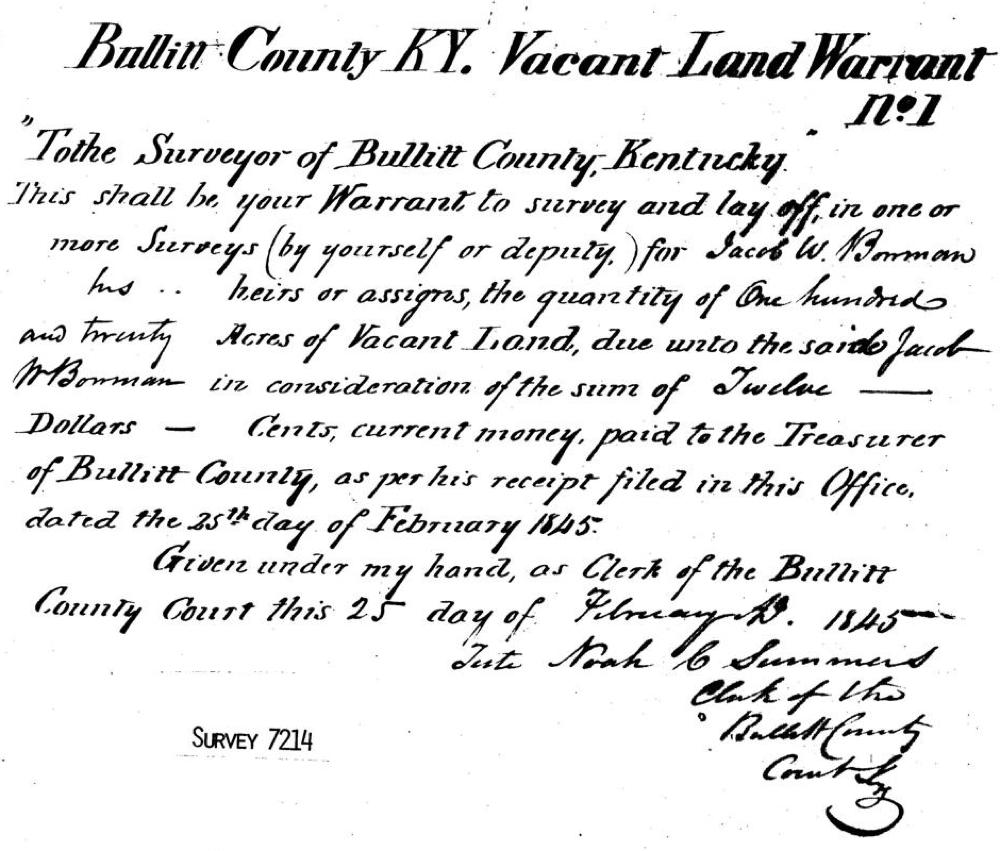 Bullitt County KY. Vacant Land Warrant
No. 1
"To the Surveyor of Bullitt County, Kentucky."
This shall be your Warrant to survey and lay off, in one or
more Surveys (by yourself or deputy,) for Jacob W. Bowman
his .. heirs or assigns, the quantity of One hundred
and twenty Acres of Vacant Land, due unto the said Jacob
W Bowman in consideration of the sum of Twelve —
Dollars — Cents, current money, paid to the Treasurer
of Bullitt County, as per his receipt filed in this Office,
dated the 25th day of February 1845.
Given under my hand, as Clerk of the Bullitt
County Court this 25 day of February AD. 1845—
Teste Noah C Summers
Clerk of the
Bullitt County
Court Ky
SURVEY 7214